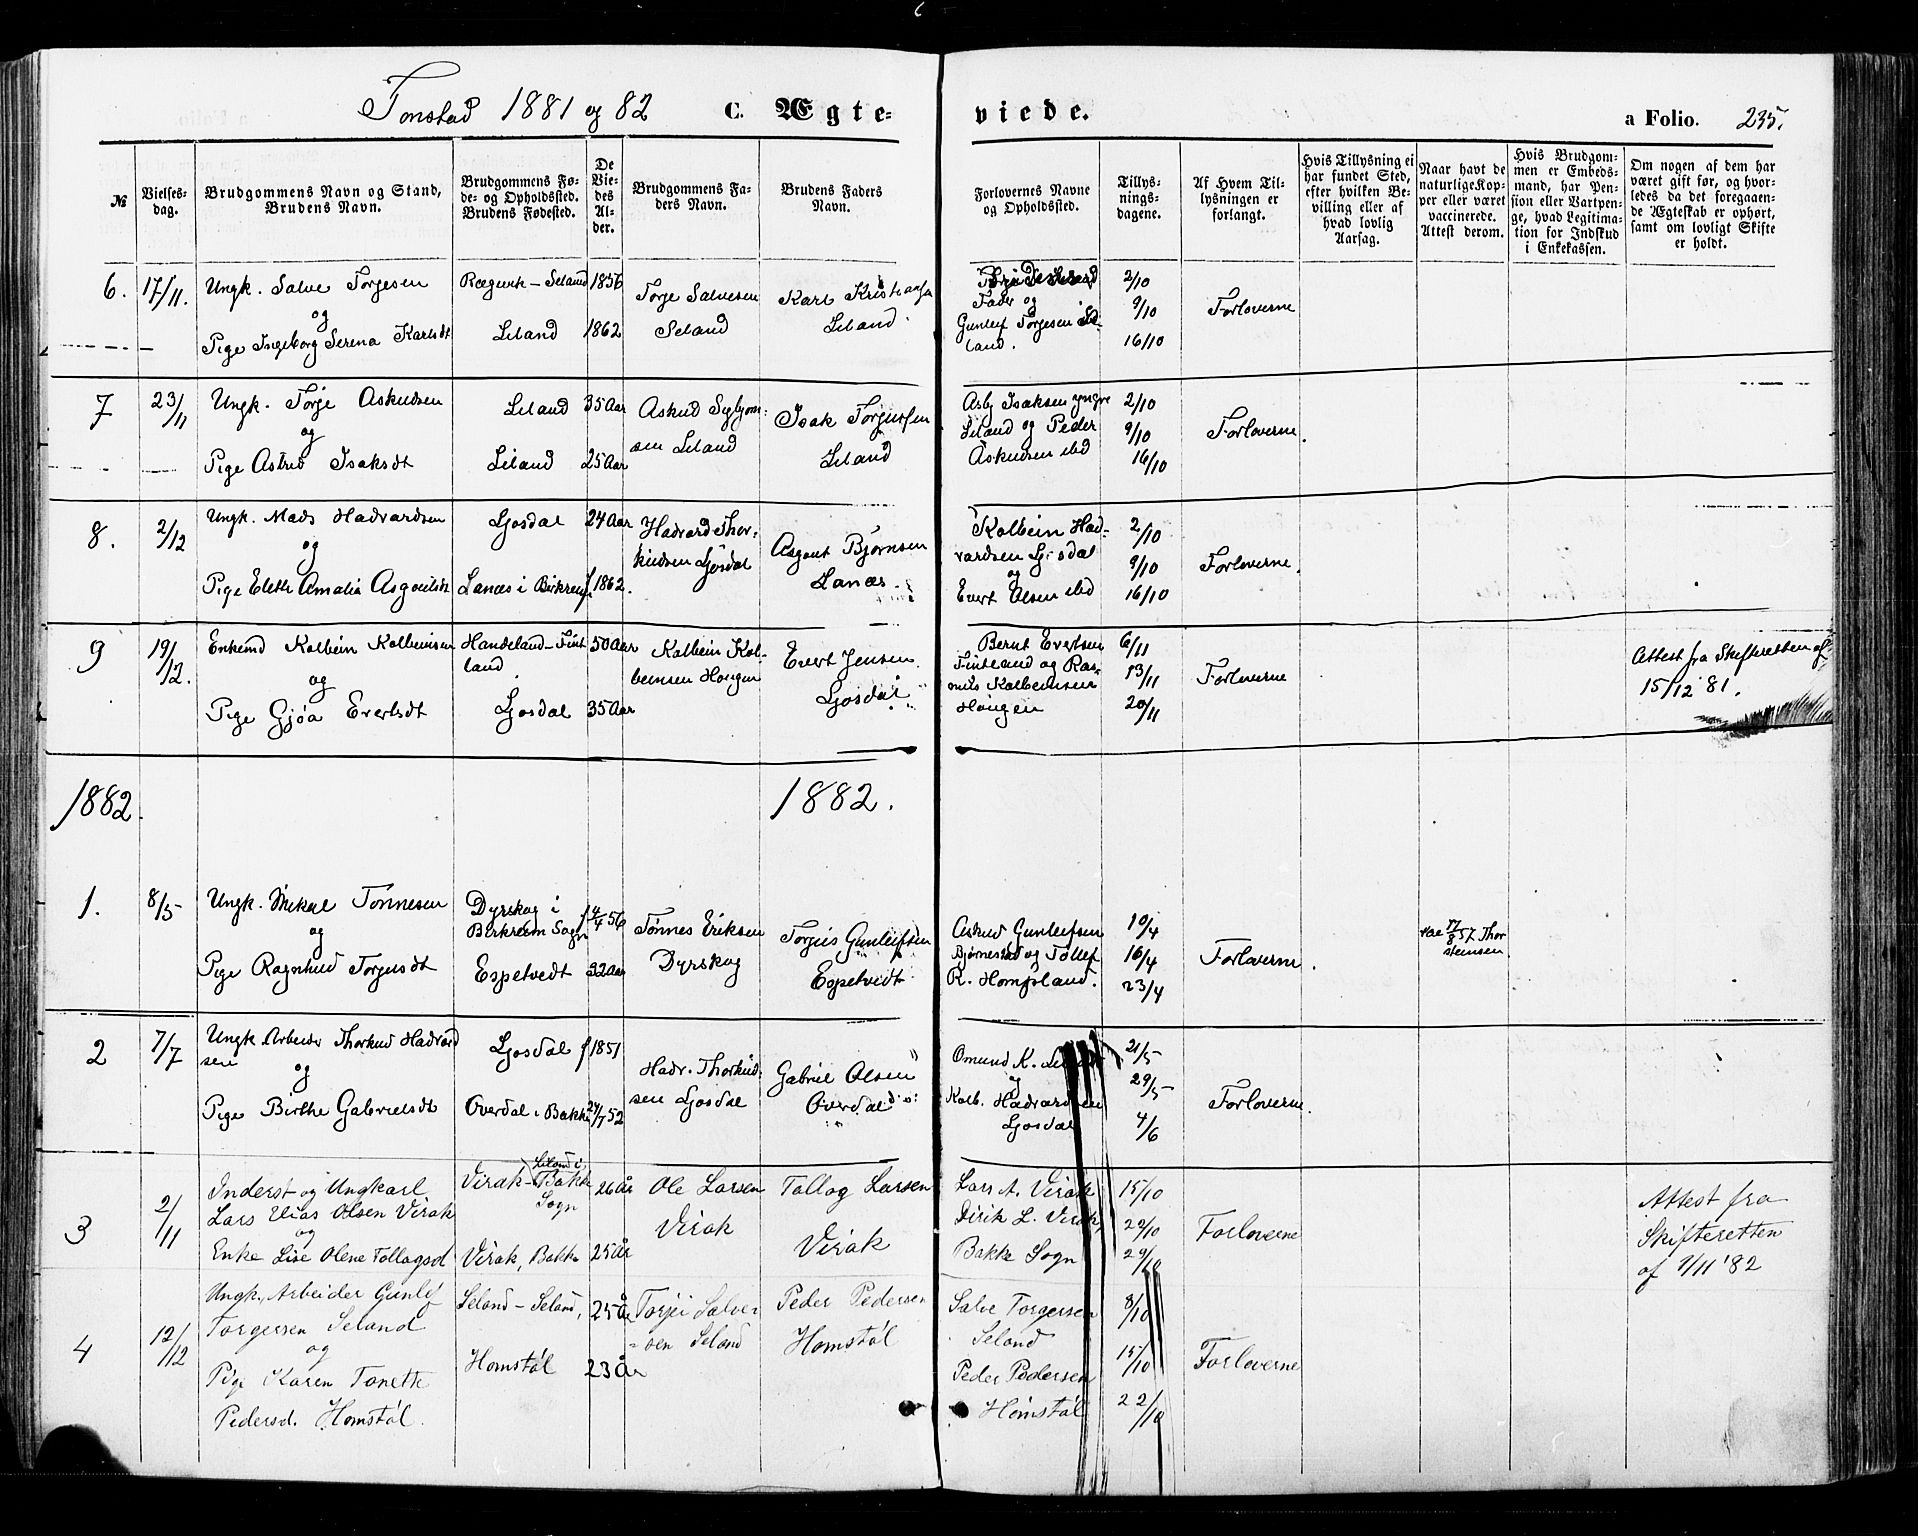 Tonstad 1881 og 82 C. Ægte- viede. a Folio. 235.
№
Vielses-
dag.
Brudgommens Navn og Stand,
Brudens Navn.
Brudgommens Fø-
de- og Opholdssted.
Brudens Fødested.
De
Vie-
des
Al-
der.
Brudgommens Fa-
ders Navn.
Brudens Faders
Navn.
Forlovernes Navne
og Opholdssted.
Tillys-
nings-
dagene.
Af Hvem Til-
lysningen er
forlangt.
Hvis Tillysning ei
har fundet Sted,
efter hvilken Be-
villing eller af
hvad lovlig
Aarsag.
Naar havt de
naturlige Kop-
per eller været
vaccinerede.
Attest derom.
Hvis Brudgom-
men er Embeds-
mand, har Pen-
sion eller Vartpen-
ge, hvad Legitima-
tion for Indskud
i Enkekassen.
Om nogen af dem har
været gift før, og hvor-
ledes da det foregaaen-
de Ægteskab er ophørt,
samt om lovligt Skifte
er holdt.
6. 17/11.
Ungk. Salve Torjesen
og
Pige Ingeborg Serena Karlsdt
Seland
Seland
1856
1862
Torje Salvesen
Seland
Karl Kristiansen
Seland
Fader og
Gunleif Torjesen Se-
land.
2/10
9/10
16/10
Forloverne
7 23/11
Ungk. Torje Askildsen
og
Pige Astrid Isaksdt
Seland
Seland
35 Aar
25 Aar
Askild
sen Seland
Isak Torjussen
Seland
Asbj Isaksen yngre
Seland og Peder
Askildsen ibd
2/10
9/10
16/10
Forloverne.
8. 2/12
Ungk. Mads Hadvardsen
og
Pige Elete Amalia Asgautsdt
Ljosdal
Lanæs i Birkrem
24 Aar
f 1862.
Hadvard Thor-
kildsen Ljosdal
Asgaut Bjørnsen
Lanæs
Kolbein Had-
vardsen Ljosdal
og
Evert Olsen ibd
2/10
9/10
16/10
Forloverne.
9 19/12.
Enkemd Kolbein Kolbeinsen
og
Pige Gjøa Evertsdt
Handeland-Fint
land.
Ljosdal
50 Aar
35 Aar
Kolbein Kol-
beinsen Hougen
Evert Jensen
Ljosdal
Bernt Evertsen
Fintland og Ras-
mus Kolbeinsen
Hougen
6/11
13/11
20/11
Forloverne
Attest fra Skifteretten af
15/12 81.
1882. 1882.
1. 8/5
Ungk. Mikal Tønnesen
og
Pige Ragnhild Torjusdt
Dyrskog i
Birkrem Sogn
Espetvedt
f 4/4 56
22 Aar
Tønnes Eriksen
Dyrskog
Torjus Gunleifsen
Espetvedt
Askild Gunleifsen
Bjørnestad og Tollef
R. Hompland.
10/4
16/4
23/4
Forloverne.
vac 17/8 57 Thor
steinsen
2 7/7
Ungk Arbeider Thorkild Hadvard
sen
og
Pige Birthe Gabrielsdt
Ljosdal
Øverdal i Bakke
f 1851
24/7 52
Hadv. Thorkild-
sen Ljosdal
Gabriel Olsen
Øverdal
Omund K.
og
Kolb. Hadvardsen
Ljosdal
21/5
29/5
4/6
Forloverne.
3 2/11
Inderst og Ungkarl
Lars Elias Olsen Virak
og
Enke Lise Olene Tollagsd
Virak- Seland i
Bakke
Sogn
Virak, Bakke
26 år
25 år
Ole Larsen
Virak
Tollag Larsen
Virak
Lars A. Virak
Dirik L. Virak,
Bakke Sogn
15/10
22/10
29/10
Forloverne
Attest fra
Skifteretten
af 1/11 '82
4 12/12
Ungk. Arbeider Gunlef
Torgersen Seland
og
Pige Karen Tonette
Pedersd. Homstøl.
Seland - Seland,
Homstøl
25 år
23 år
Torjei Salve-
sen Seland
Peder Pedersen
Homstøl
Salve Torgersen
Seland
Peder Pedersen
Homstøl
8/10
15/10
22/10
Forloverne